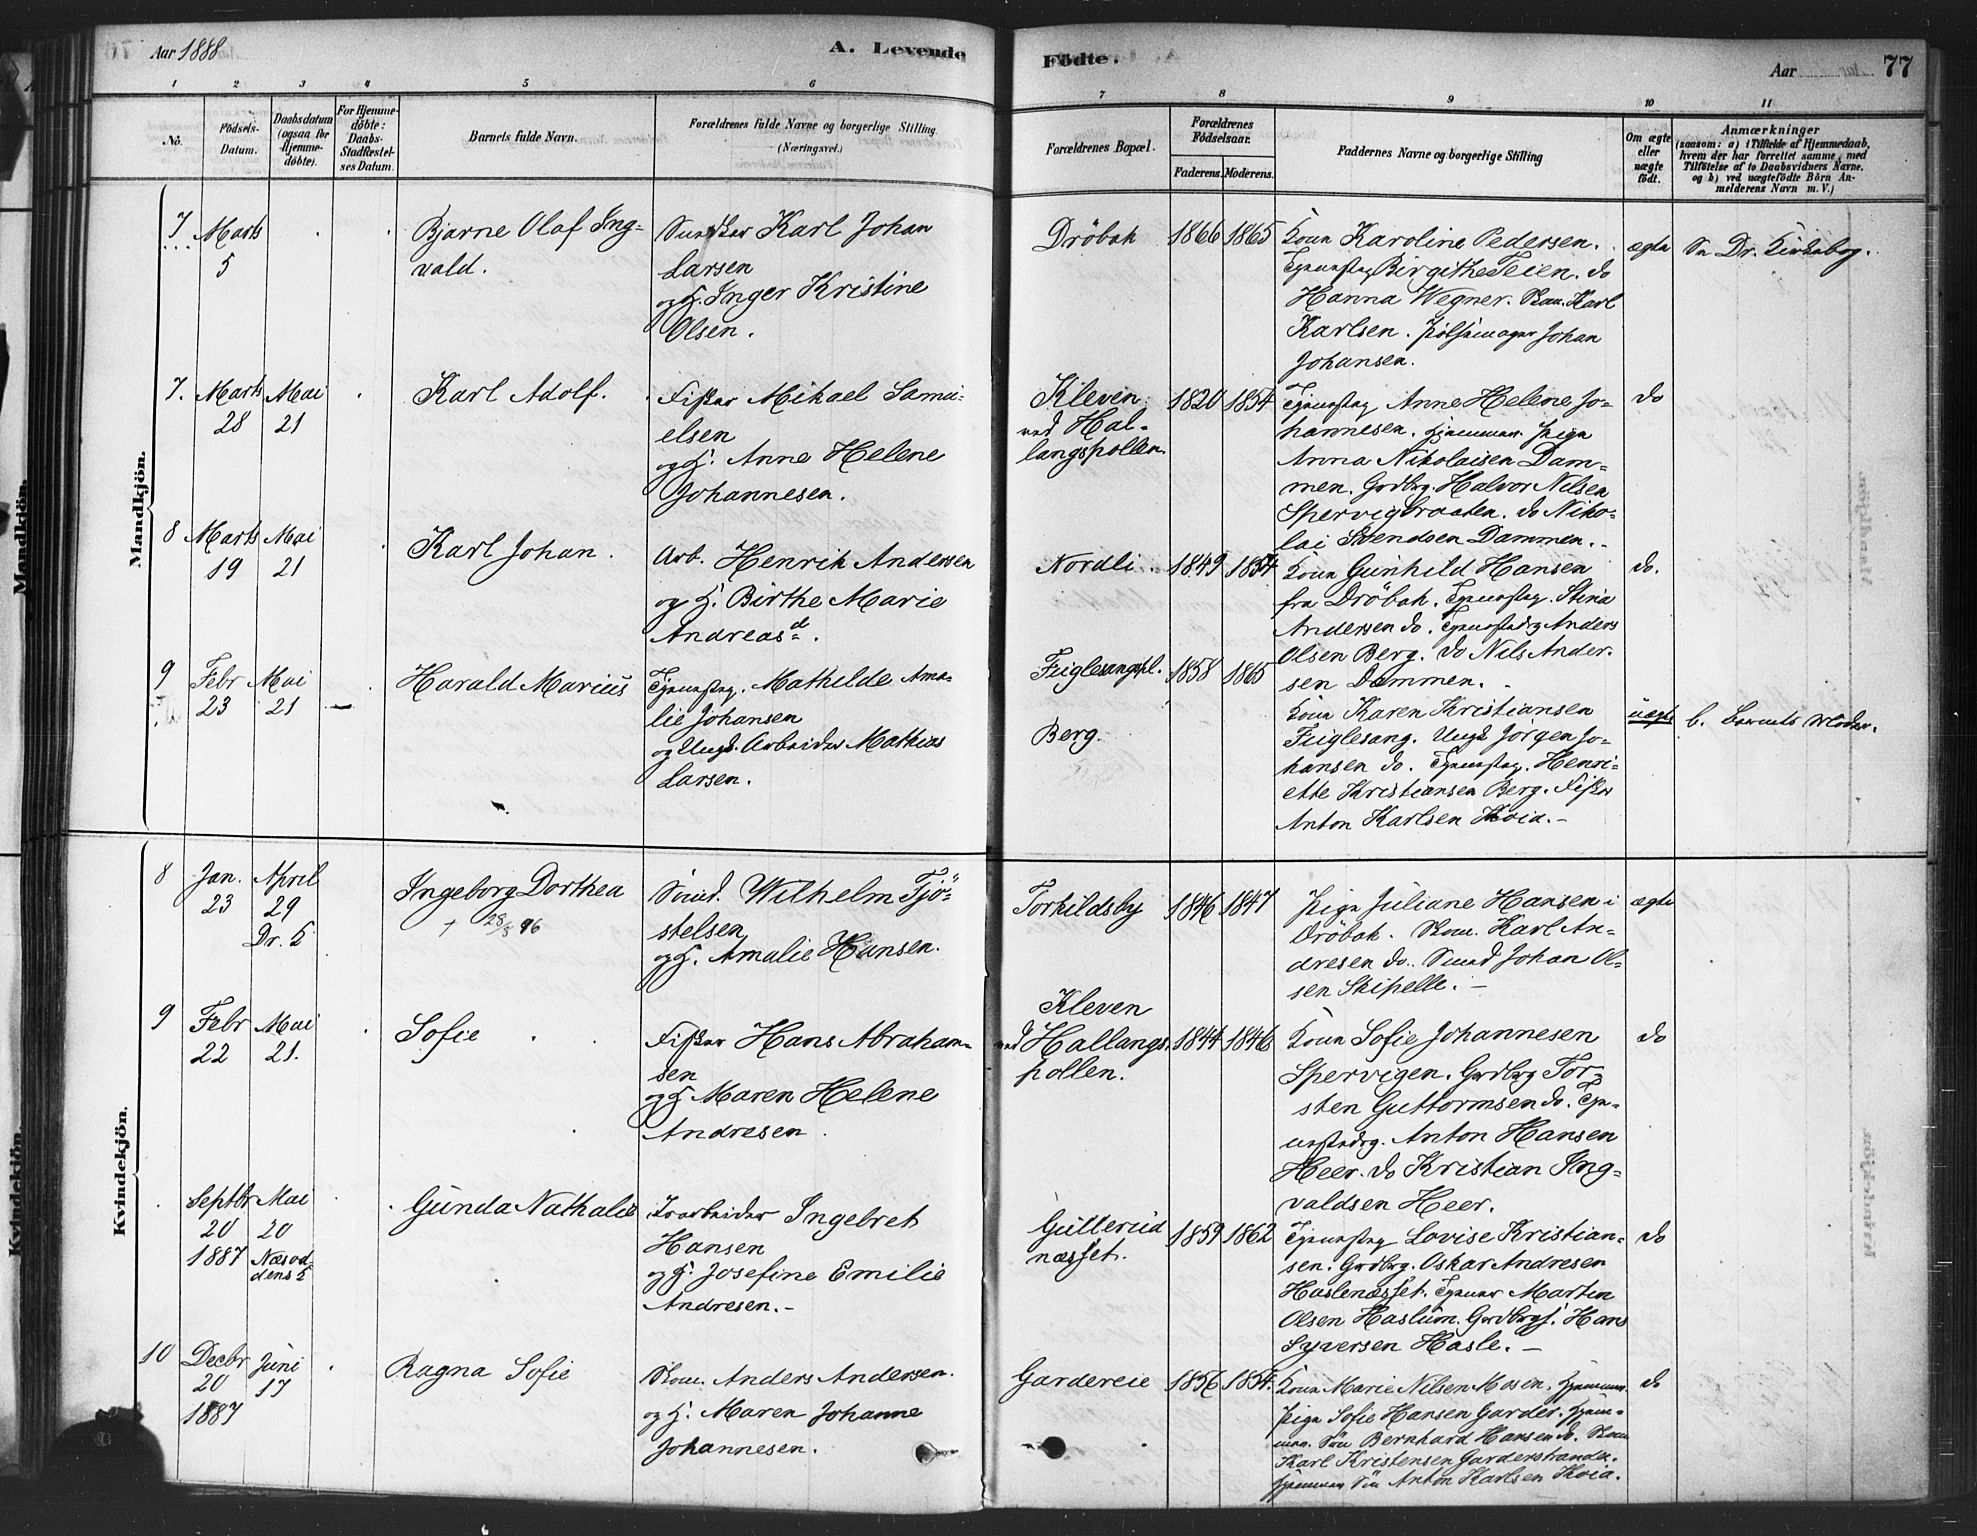 Aar 1888
A. Levende
Födte.
Aar
77
1 2 3 4 5 6
7 8 9 10 11
No.
Födsels-
Datum.
Daabsdatum
(ogsaa for
Hjemme-
döbte).
For Hjemme-
döbte:
Daabs-
Stadfæstel-
ses Datum.
Barnets fulde Navn.
Forældrenes fulde Navne og borgerlige Stilling
(Næringsvei.)
Forældrenes Bopæl.
Forældrenes
Födselsaar.
Faderens. Moderens.
Faddernes Navne og borgerlige Stilling
Om ægte
eller
uægte
födt.
Anmærkninger
(saasom: a) i Tilfælde af Hjemmedaab,
hvem der har forrettet samme, med
Tilföielse af to Daabsvidners Navne,
og b) ved uægtefödte Börn An-
melderens Navn m. V.)
Mandkjön.
7 Marts
5
Bjarne Olaf Ing-
vald.
Karl Johan
Larsen
og H. Inger Kristine
Olsen.
Dröbak
1866 1865
Kone Karoline Pedersen.
Birgithe Teien. do
Hanna Wegner. Skom. Karl
Karlsen. Johan
Johansen.
ægte
Se Dr. Kirkebog.
7. Marts Mai
28 21
Karl Adolf.
Fisker Mikael Samu-
elsen
og H. Anne Helene
Johannesen.
Kleven
ved Hal-
langspollen
1820 1854
Tjenestpg Anne Helene Jo-
hannesen. Hjemmev. Pige
Anna Nikolaisen Dam-
men. Grdbrg. Halvor Nilsen
Spervigbraaten. do Niko-
lai Svendsen Dammen.
do
8 Marts Mai
19 21
Karl Johan.
Arb. Henrik Andersen
og H. Birthe Marie
Andreasd.
Nordli.
1849 1854
Kone Gunhild Hansen
fra Dröbak. Tjenestpg. Stina
Andersen do. Tjenestedrg Anders
Olsen Berg. do Nils Ander-
sen Dammen.
do.
9 Febr Mai
23 21
Harald Marius
Tjenestpg. Mathilde Ama-
lie Johansen
og Ungk. Arbeider Mathias
Larsen.
Fuglesangspl.
Berg.
1858 1865
Kone Karen Kristiansen
Fuglesang. Ungk Jörgen Jo-
hansen do. Tjenestpg. Henri-
ette Kristiansen Berg. Fisker
Anton Karlsen Hvia.
uægte
b. Barnets Moder.
Kvindekjön.
8 Jan. April
23 29
Dr. K
Ingeborg Dorthea
+ 28/8 96
Smed. Wilhelm Tjö-
stelsen
og H. Amalie Hansen.
Torkildsby
1846 1847
Pige Juliane Hansen i
Dröbak. Skom. Karl An-
dresen do. Smed Johan Ol-
sen Skipelle.
ægte
9 Febr Mai
22 21.
Sofie
Fisker Hans Abraham-
sen
og H Maren Helene
Andresen.
Kleven
ved Hallangs
pollen.
1844 1846
Kone Sofie Johannesen
Spervigen. Grdbrg Tor-
sten Guttormsen do. Tje-
nestedrg. Anton Hansen
Heer. do Kristian Ing-
valdsen Heer.
do
Septbr Mai
20 20
1887 Næsod-
dens K
Gunda Nathalie
Isarbeider Ingebret
Hansen
og H. Josefine Emilie
Andresen.
Gullerud
næsset.
1859 1862
Tjenestpg Lovise Kristian-
sen. Grdbrg. Oskar Andresen
Haslenæsset. Martin
Olsen Haslum. Grdbrgs. Hans
Syversen Hasle.
do
10 Decbr Juni
20 17
1887
Ragna Sofie
Skom. Anders Andersen.
og H. Maren Johanne
Johannesen.
Gardereie
1856 1854.
Kone Marie Nilsen Mosen. Hjemmev.
Pige Sofie Hansen Garder. Hjem-
mev. Sön Bernhard Hansen do. Skom
Karl Kristensen Garderstranda.
Hjemmev Sön Anton Karlsen Hvia.
do